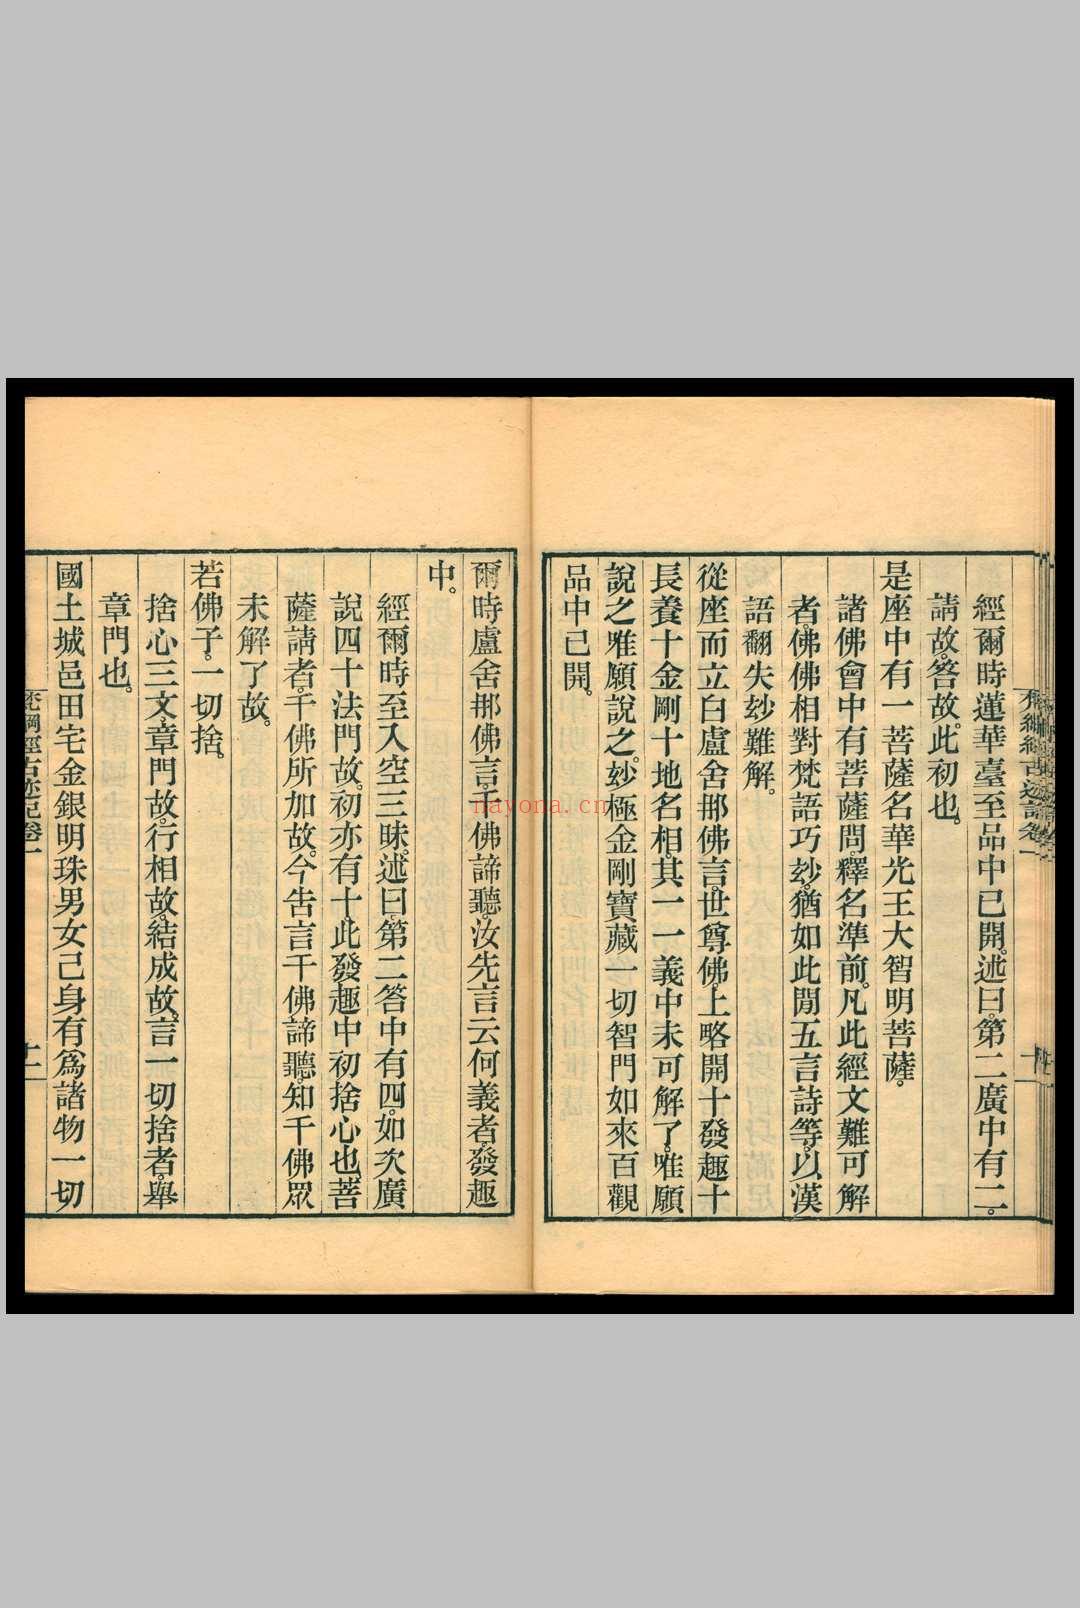 經爾時蓮華臺至品中已開。述曰。第二廣中有二。
請故。答故。此初也。
是座中有一菩薩名華光王大智明菩薩。
諸佛會中有菩薩問。釋名準前。凡此經文難可解
者。佛佛相對。梵語巧玅。猶如此閒五言詩等。以漢
語翻失玅難解。
從座而立白盧舍那佛言。世尊佛。上略開十發趣十
長養十金剛十地名相。其一一義中未可解了。唯願
說之唯願說之。玅極金剛寶藏一切智門如來百觀
品中已開。
爾時盧舍那佛言。千佛諦聽。汝先言云何義者。發趣
中。
經爾時至入空三昧。述曰。第二答中有四。如次廣
說四十法門故。初亦有十。此發趣中初捨心也。菩
薩請者。千佛所加故。今告言千佛諦聽。知千佛眾
未解了故。
若佛子。一切捨。
捨心三文。章門故。行相故。結成故。言一切捨者。舉
章門也。
國土城邑田宅金銀明珠男女己身有爲諸物一切
梵網經古迹記卷一
十一
nayona.cn